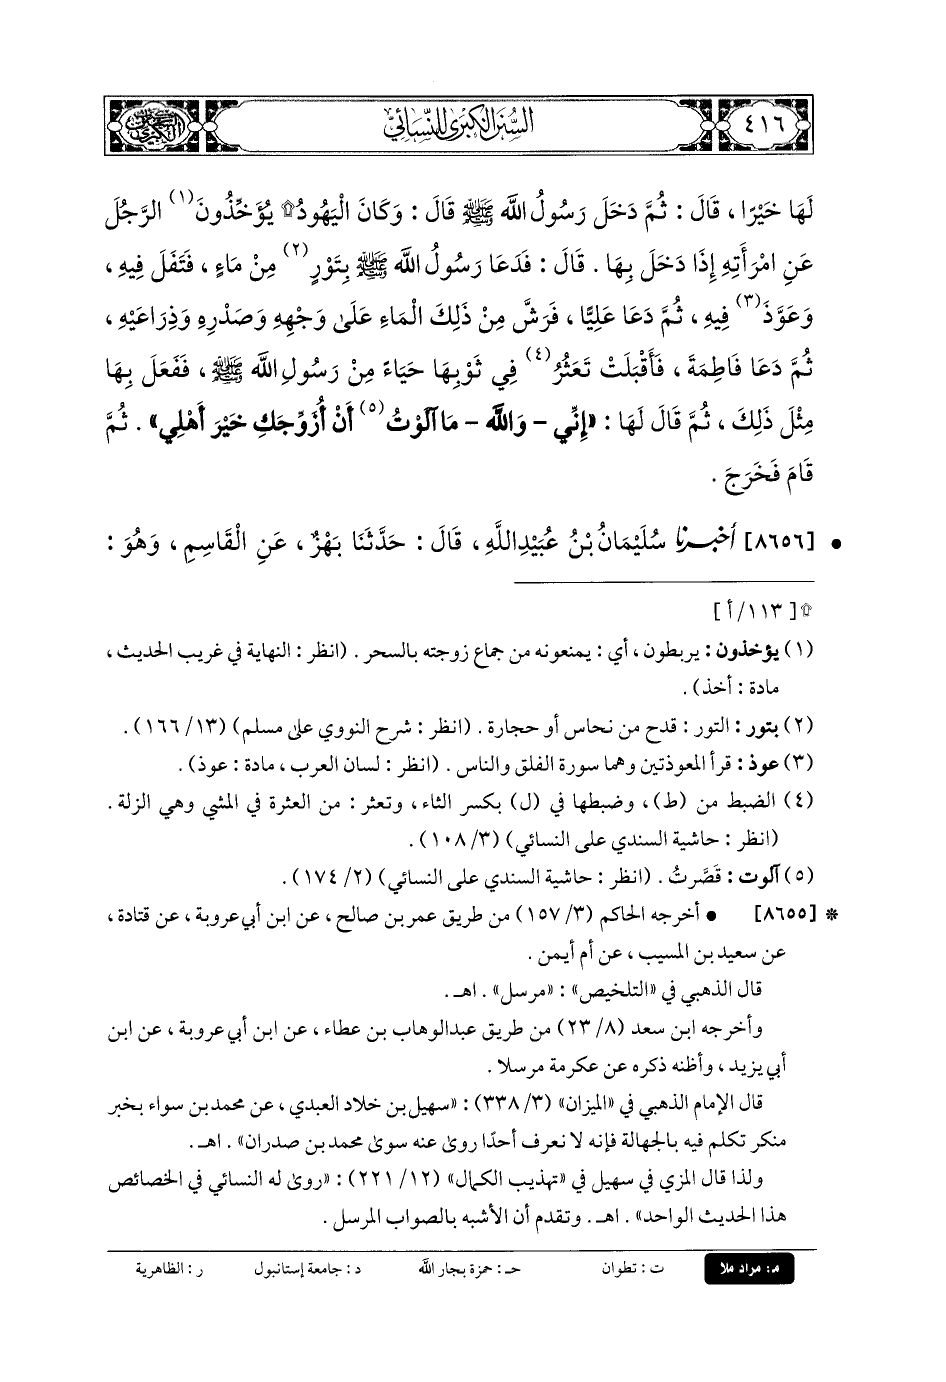 ٤١٦
السنن الكبرى للنسائي
لَهَا خَيْرًا ، قَالَ : ثُمَّ دَخَلَ رَسُولُ اللَّه ﷺ قَالَ : وَكَانَ الْيَهُودُ۩ يُؤَخِّذُونَ(١) الرَّجُلَ
عَنِ امْرَأَتِهِ إِذَا دَخَلَ بِهَا . قَالَ : فَدَعَا رَسُولُ اللَّه ﷺ بِتَوْرٍ(٢) مِنْ مَاءٍ ، فَتَفَلَ فِيهِ ،
وَعَوَّذَ(٣) فِيهِ ، ثُمَّ دَعَا عَلِيًّا ، فَرَشَّ مِنْ ذَلِكَ الْمَاءِ عَلَىٰ وَجْهِهِ وَصَدْرِهِ وَذِرَاعَيْهِ ،
ثُمَّ دَعَا فَاطِمَةَ ، فَأَقْبَلَتْ تَعَثُرُ(٤) فِي ثَوْبِهَا حَيَاءً مِنْ رَسُولِ اللَّه ﷺ ، فَفَعَلَ بِهَا
مِثْلَ ذَلِكَ ، ثُمَّ قَالَ لَهَا : «إِنِّي - وَاللَّه - مَا آلَوْتُ(٥) أَنْ أُزَوِّجَكِ خَيْرَ أَهْلِي» . ثُمَّ
قَامَ فَخَرَجَ .
• [٨٦٥٦] أخبرنا سُلَيْمَانُ بْنُ عُبَيْدِاللَّهِ ، قَالَ : حَدَّثَنَا بَهْزٌ ، عَنِ الْقَاسِمِ ، وَهُوَ :
۩ [ ١١٣/ أ ]
(١) يؤخذون : يربطون ، أي : يمنعونه من جماع زوجته بالسحر . (انظر : النهاية في غريب الحديث ،
مادة : أخذ) .
(٢) بتور : التور : قدح من نحاس أو حجارة . (انظر : شرح النووي على مسلم) (١٣/ ١٦٦) .
(٣) عوذ : قرأ المعوذتين وهما سورة الفلق والناس . (انظر : لسان العرب ، مادة : عوذ) .
(٤) الضبط من (ط) ، وضبطها في (ل) بكسر الثاء ، وتعثر : من العثرة في المشي وهي الزلة .
(انظر : حاشية السندي على النسائي) (٣/ ١٠٨) .
(٥) آلوت : قَصَّرتُ . (انظر : حاشية السندي على النسائي) (٢/ ١٧٤) .
* [٨٦٥٥] • أخرجه الحاكم (٣/ ١٥٧) من طريق عمر بن صالح ، عن ابن أبي عروبة ، عن قتادة ،
عن سعيد بن المسيب ، عن أم أيمن .
قال الذهبي في «التلخيص» : «مرسل» . اهـ .
وأخرجه ابن سعد (٨/ ٢٣) من طريق عبدالوهاب بن عطاء ، عن ابن أبي عروبة ، عن ابن
أبي يزيد ، وأظنه ذكره عن عكرمة مرسلا .
قال الإمام الذهبي في «الميزان» (٣/ ٣٣٨) : «سهيل بن خلاد العبدي ، عن محمد بن سواء بخبر
منكر تكلم فيه بالجهالة فإنه لا نعرف أحدًا روىٰ عنه سوىٰ محمد بن صدران» . اهـ .
ولذا قال المزي في سهيل في «تهذيب الكمال» (١٢/ ٢٢١) : «روىٰ له النسائي في الخصائص
هذا الحديث الواحد» . اهـ . وتقدم أن الأشبه بالصواب المرسل .
م : مراد ملا ت : تطوان حـ : حمزة بجار اللَّه د : جامعة إستانبول ر : الظاهرية